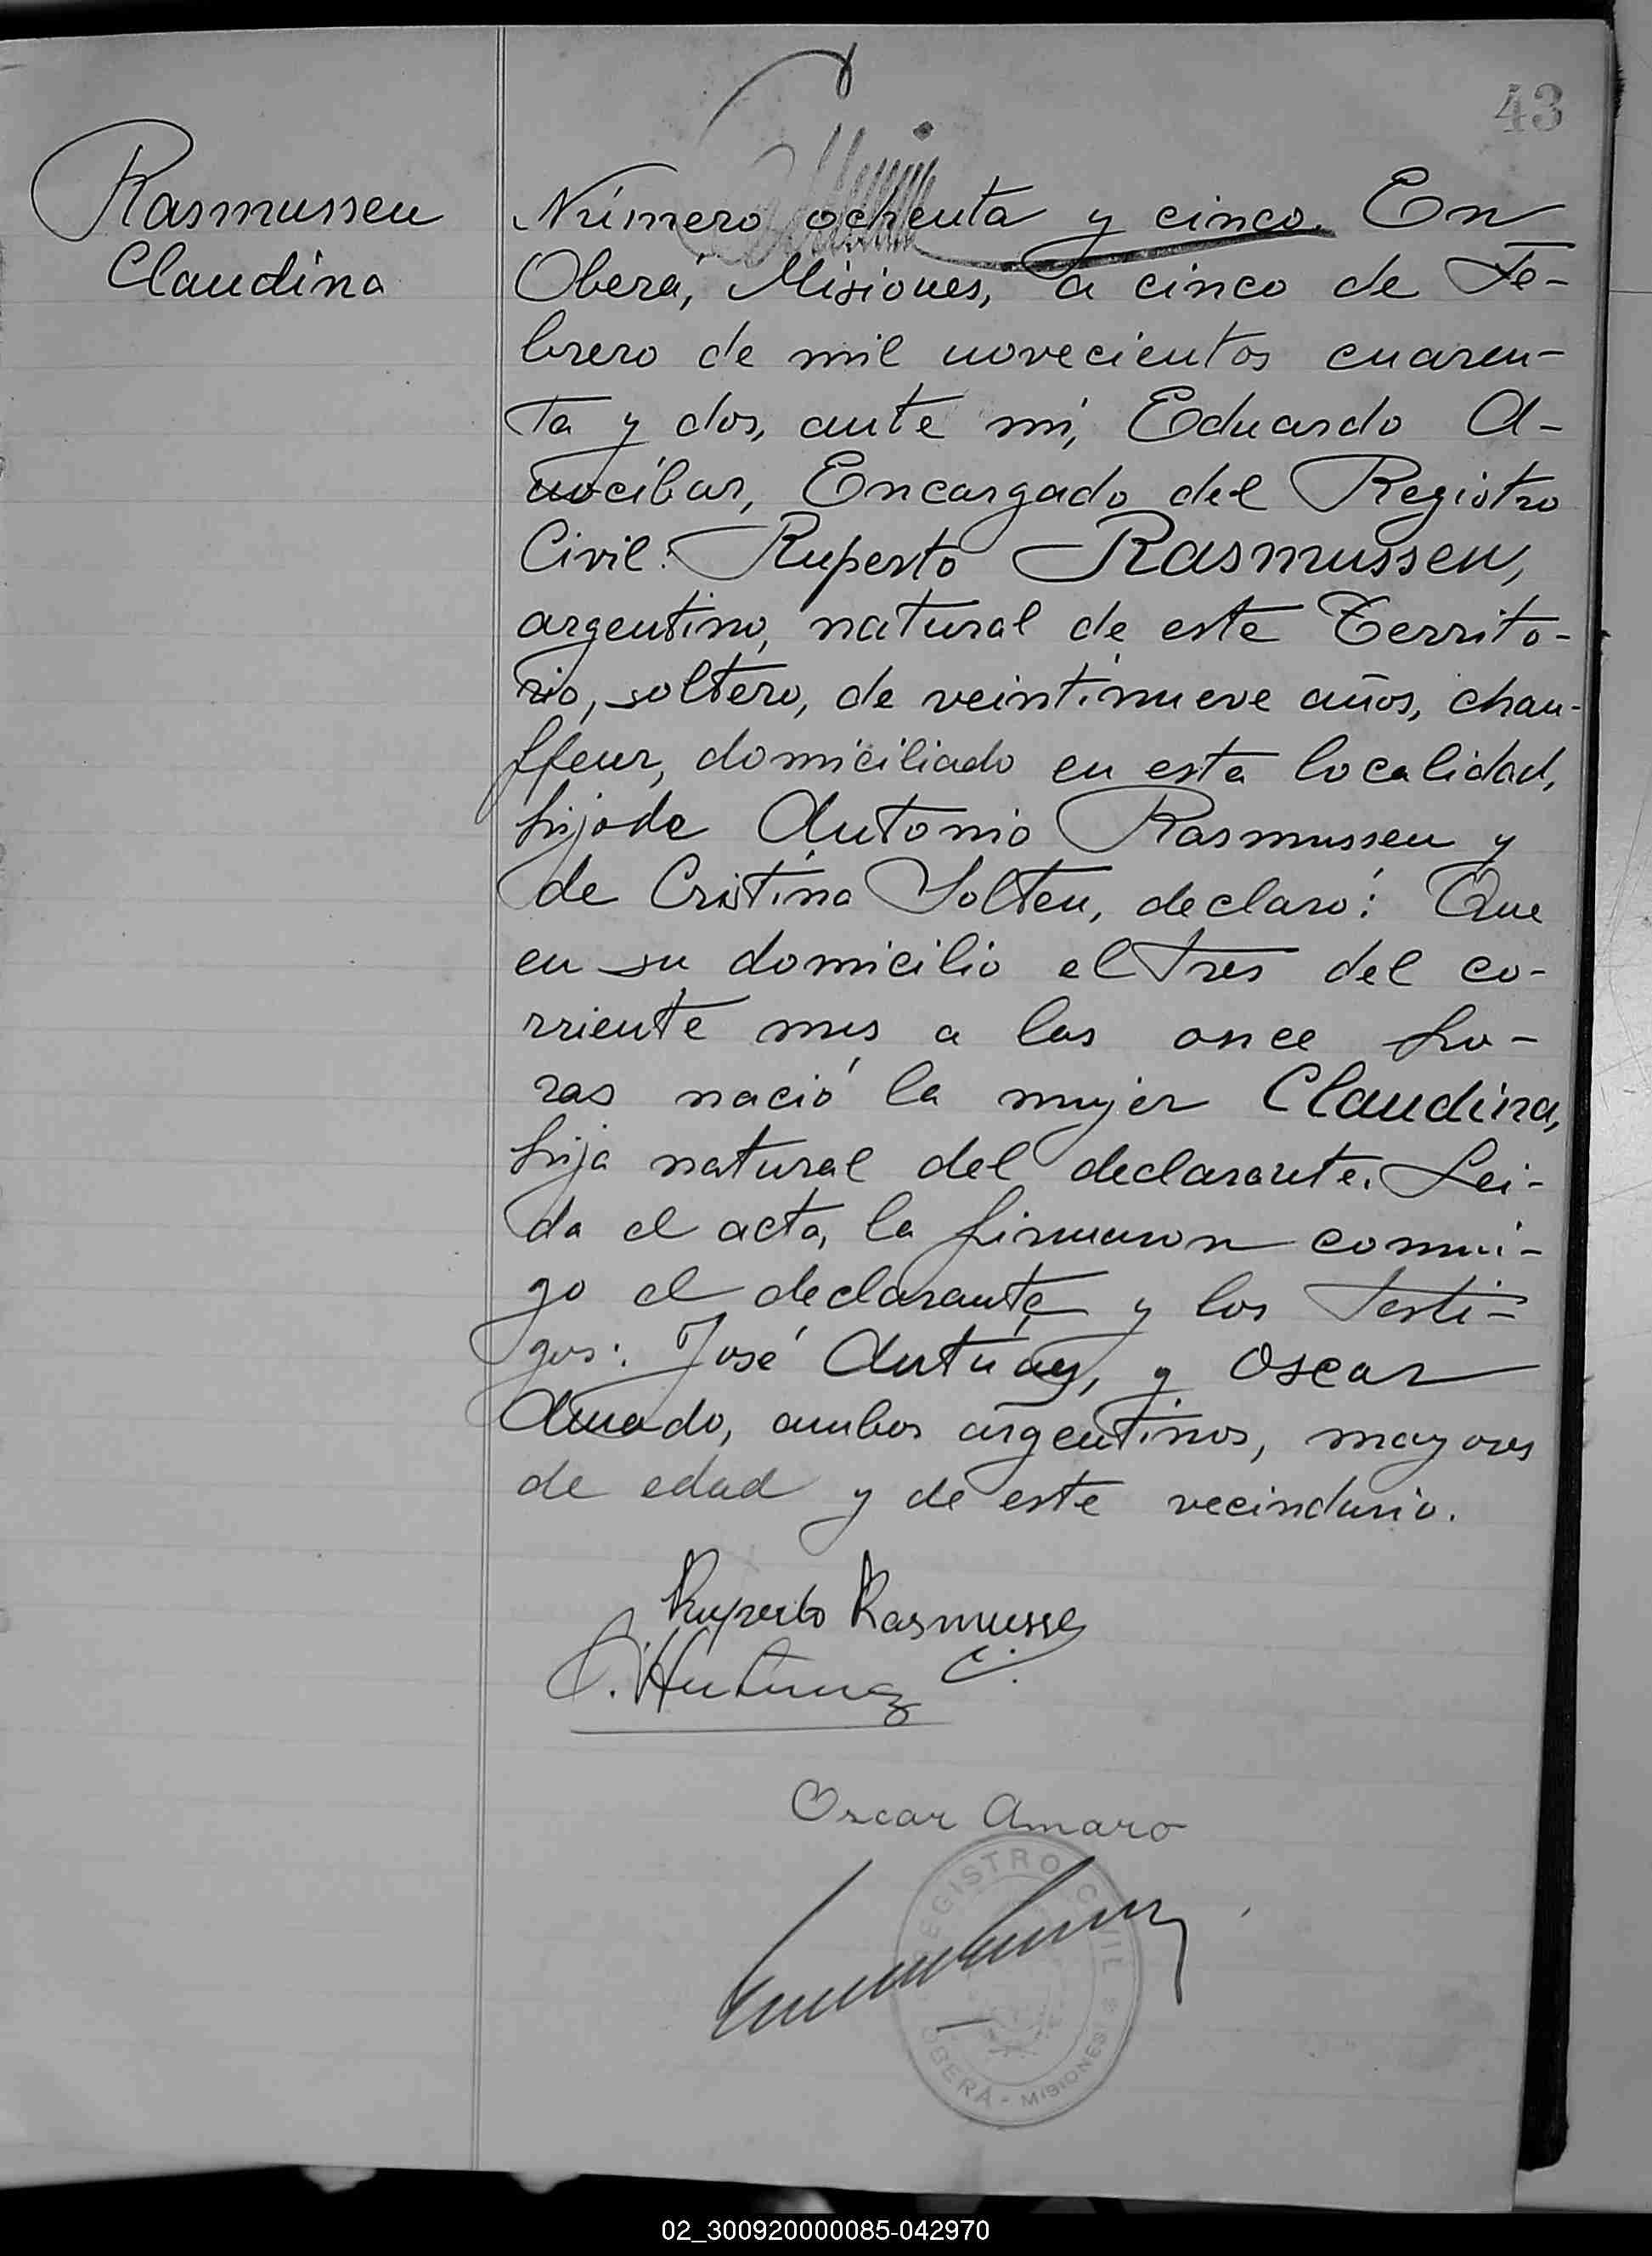 43
Rasmussen
Claudina
Número ochenta y cinco. En
Oberá, Misiones, a cinco de Fe-
brero de mil novecientos cuaren-
ta y dos, ante mí, Eduardo A-
nocíbar, Encargado del Registro
Civil: Ruperto Rasmussen,
argentino, natural de este Territo-
rio, soltero, de veintinueve años, chau-
ffeur, domiciliado en esta localidad,
hijo de Antonio Rasmussen y
de Cristina Solten, declaró: Que
en su domicilio el tres del co-
rriente mes a las once ho-
ras nació la mujer Claudina,
hija natural del declarante. Lei-
da el acta, la firmaron conmi-
go el declarante y los testi-
gos: José Antúnez, y Oscar
Amado, ambos argentinos, mayores
de edad y de este vecindario.
Ruperto Rasmusse
Oscar Amaro
REGISTRO CIVIL
OBERÁ - MISIONES
02_300920000085-042970